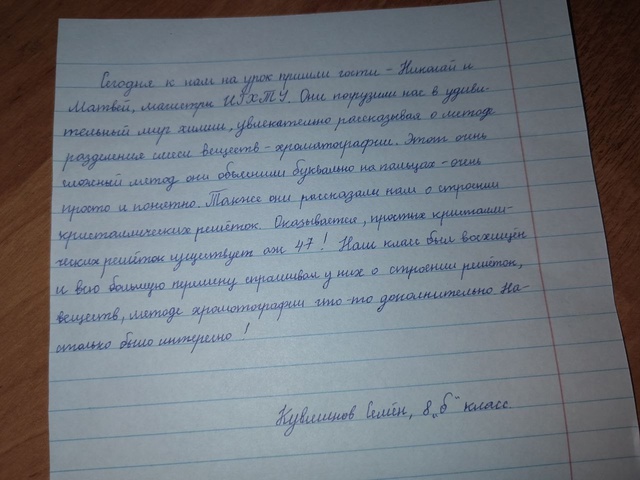 Сегодня к нам на урок пришли гости - Николай и
Матвей, магистры ИГХТУ. Они погрузили нас в удиви-
тельный мир химии, увлекательно рассказывая о методе
разделения смеси веществ - хроматографии. Этот очень
сложный метод они объяснили буквально на пальцах - очень
просто и понятно. Также они рассказали нам о строении
кристаллических решёток. Оказывается, простых кристалли-
ческих решёток существует аж 47! Наш класс был восхищён
и всю большую перемену спрашивал у них о строении решёток,
веществ, методе хроматографии что-то дополнительно. На-
столько было интересно!
Семён, 8 „б" класс.